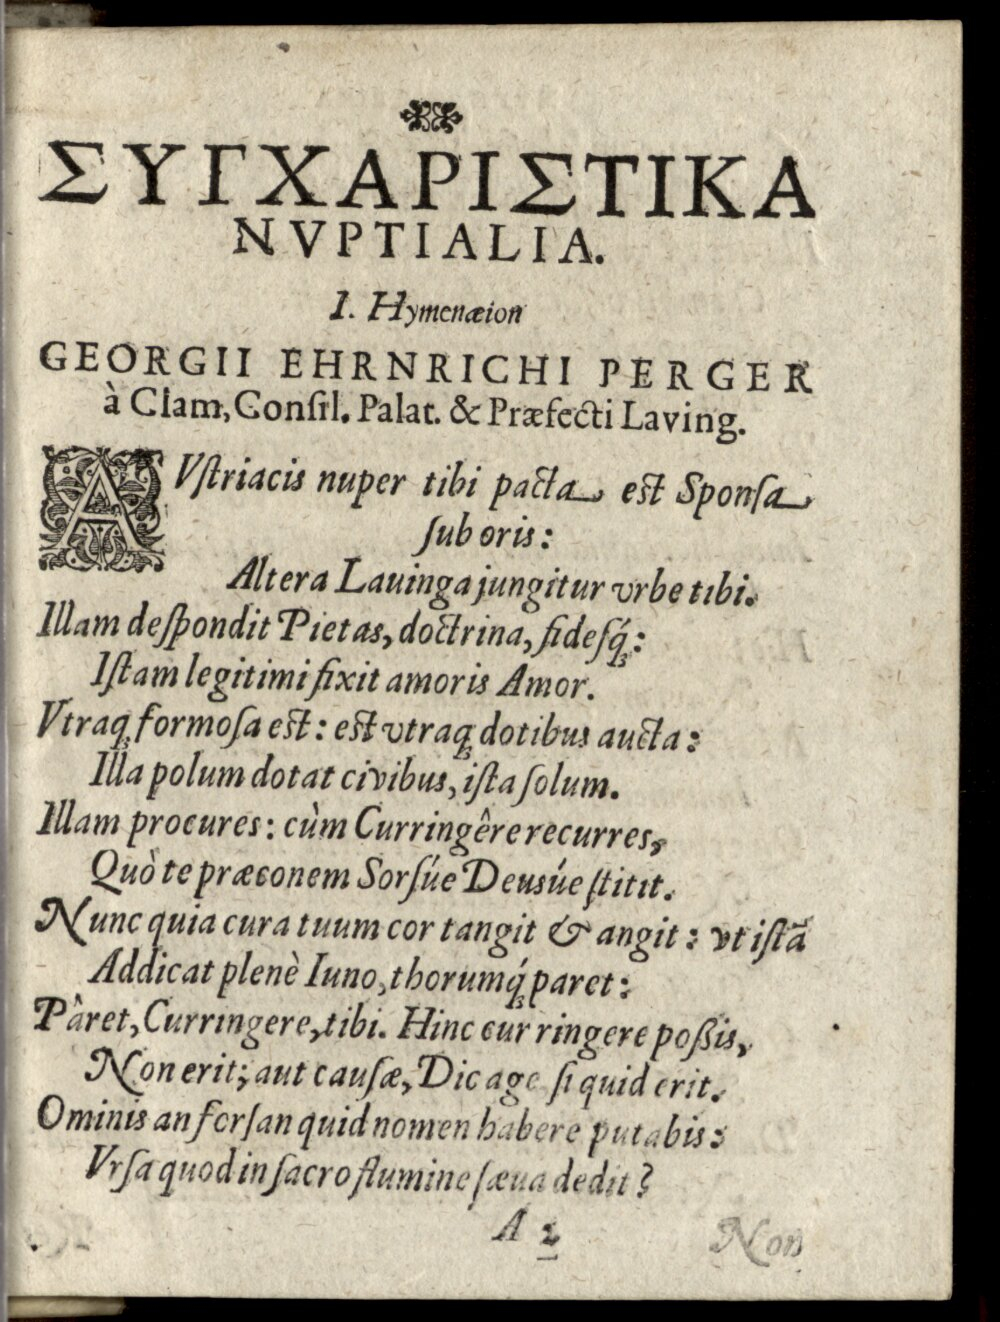 ΣΥΓΧΑΡΙΣΤΙΚΑ
NVPTIALIA.
I. Hymenæion
GEORGII EHRNRICHI PERGER
à Clam, Consil. Palat. & Præfecti Laving.
AVſtriacis nuper tibi pacta est Sponſa
ſub oris:
Altera Lauinga jungitur vrbe tibi.
Illam deſpondit Pietas, doctrina, fidesq́;:
Iſtam legitimi fixit amoris Amor.
Vtraq; formoſa est: est vtraq; dotibus aucta:
Illa polum dotat civibus, iſta ſolum.
Illam procures: cùm Curringêre recurres,
Quò te præconem Sorſúe Deusúe ſtitit.
Nunc quia cura tuum cor tangit & angit: vt iſtã
Addicat plenè Iuno, thorumq́; paret:
Pâret, Curringere, tibi. Hinc cur ringere poßis,
Non erit; aut cauſæ, Dic age ſi quid erit.
Ominis an forſan quid nomen habere putabis:
Vrſa quod in ſacro flumine ſæua dedit?
A 2 Non